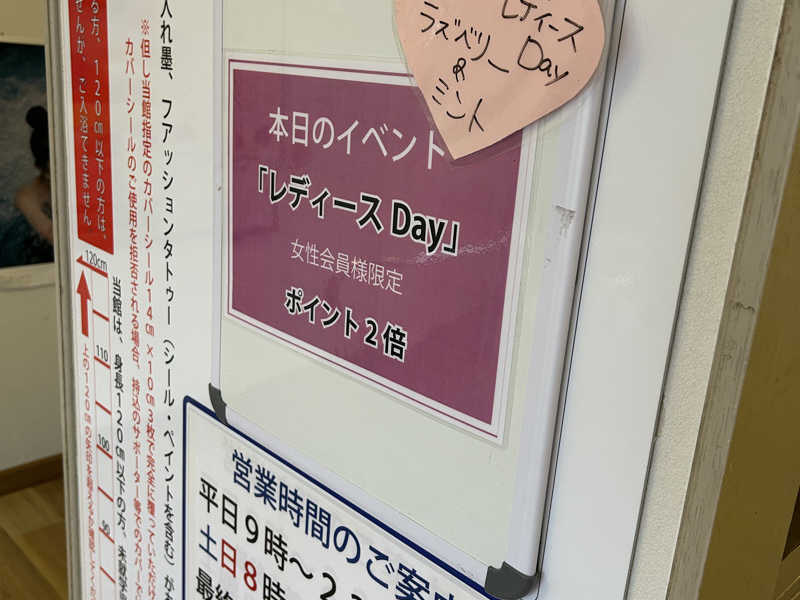 レディース
Day
ラズベリー
&
ミント
本日のイベント
「レディース Day」
女性会員様限定
ポイント2倍
営業時間のご案内
平日9時〜2
土日8時
最終
入れ墨、ファッションタトゥー（シール・ペイントを含む）が
※但し当館指定のカバーシール14㎝×10㎝3枚で完全に覆っていただけ
カバーシールのご使用を拒否される場合、持込のサポーター等でのカバーで
る方、120㎝以下の方は、
せんが、ご入浴できません
当館は、身長120㎝以下の方、未就学
上の120㎝の矢印を超えるか確認してくだ
120cm
110
100
90